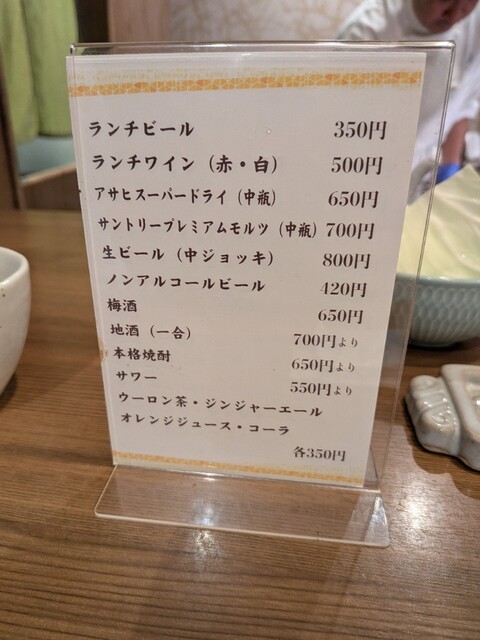 ランチビール 350円
ランチワイン（赤・白） 500円
アサヒスーパードライ（中瓶） 650円
サントリープレミアムモルツ（中瓶）700円
生ビール（中ジョッキ） 800円
ノンアルコールビール 420円
梅酒 650円
地酒（一合） 700円より
本格焼酎 650円より
サワー 550円より
ウーロン茶・ジンジャーエール
オレンジジュース・コーラ
各350円